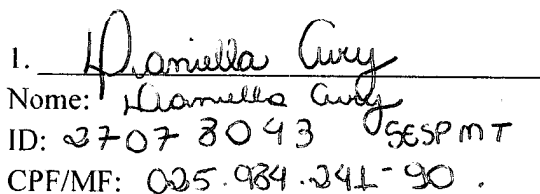 1. Daniella Cury
Nome: Daniella Cury
ID: 2707 3043 SESPMT
CPF/MF: 025.984.241-90.